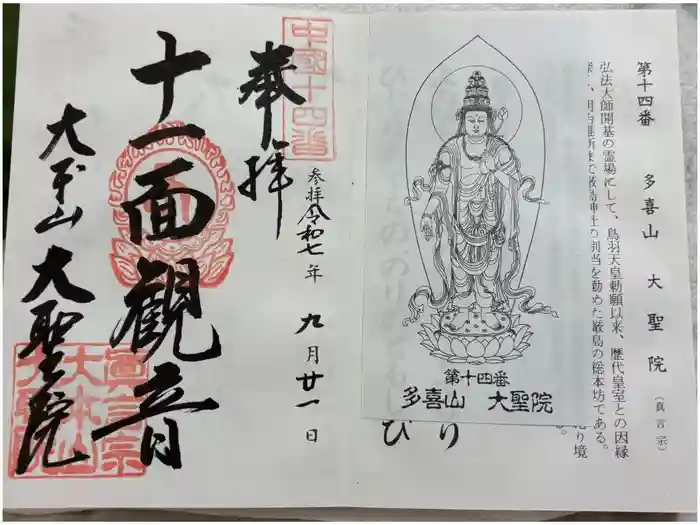 第十四番 多喜山 大聖院 (真言宗)
弘法大師開基の霊場にして、鳥羽天皇勅願以来、歴代皇室との因縁
深く、明治維新まで厳島神社の別当を勤めた厳島の総本坊である。
第十四番
多喜山 大聖院
中國十四番
奉拝
参拝令和七年九月廿一日
十一面観音
大本山 大聖院
真言宗
大本山
大聖院